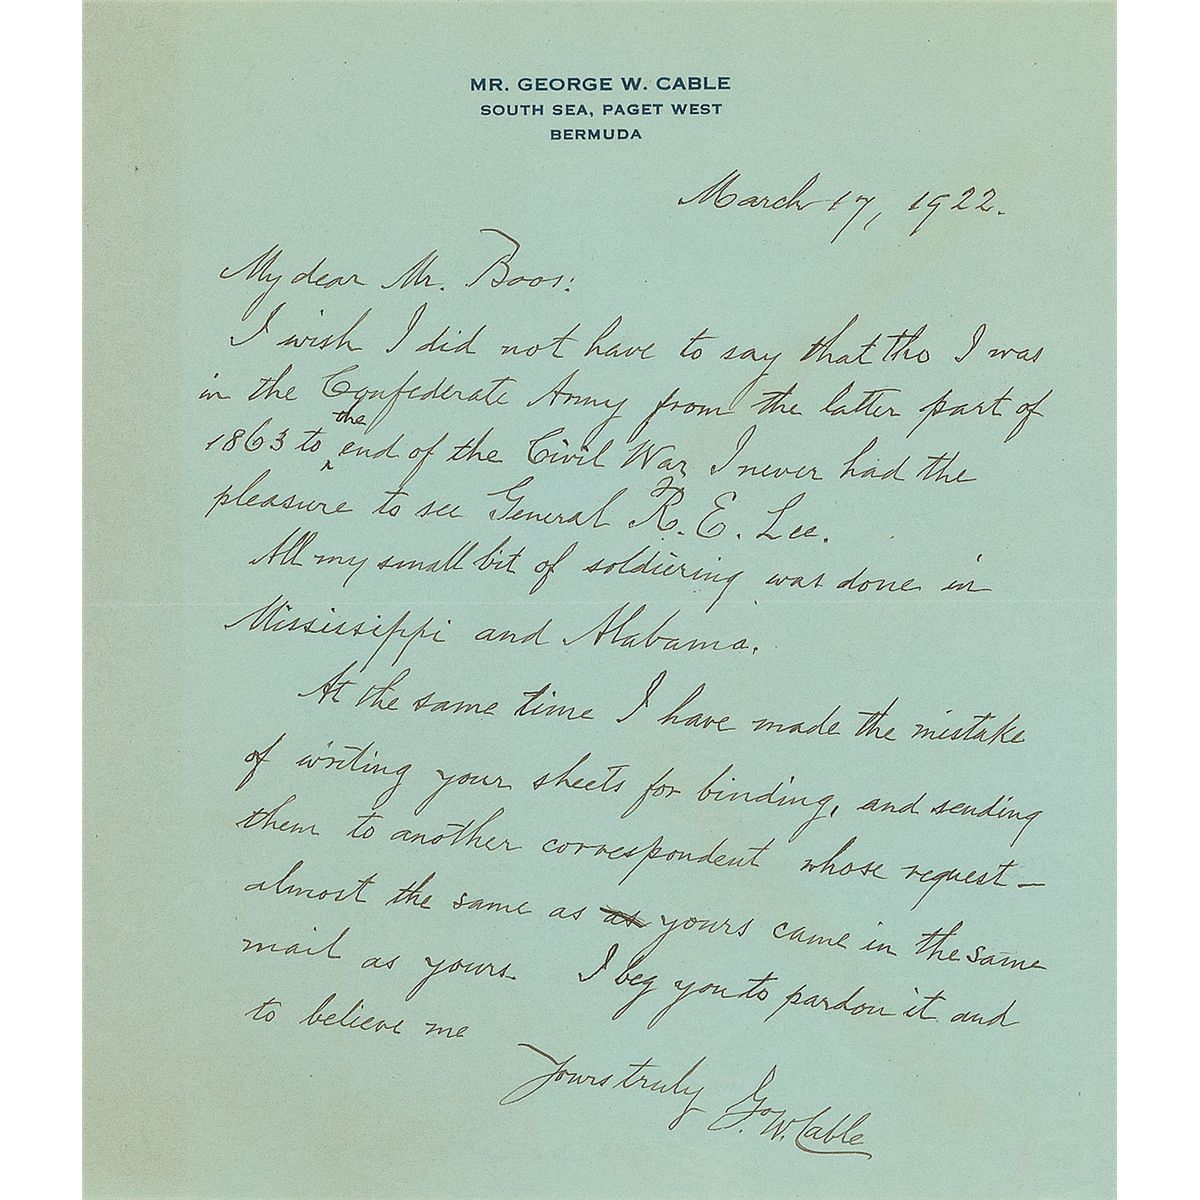 MR. GEORGE W. CABLE
SOUTH SEA, PAGET WEST
BERMUDA
March 17, 1922.
My dear Mr. Boos:
I wish I did not have to say that tho I was
in the Confederate Army from the latter part of
1863 to the end of the Civil War, I never had the
pleasure to see General R. E. Lee.
All my small bit of soldiering was done in
Mississippi and Alabama.
At the same time I have made the mistake
of writing your sheets for binding, and sending
them to another correspondent whose request —
almost the same as as yours came in the same
mail as yours. I beg you to pardon it and
to believe me
Yours truly
G. W. Cable